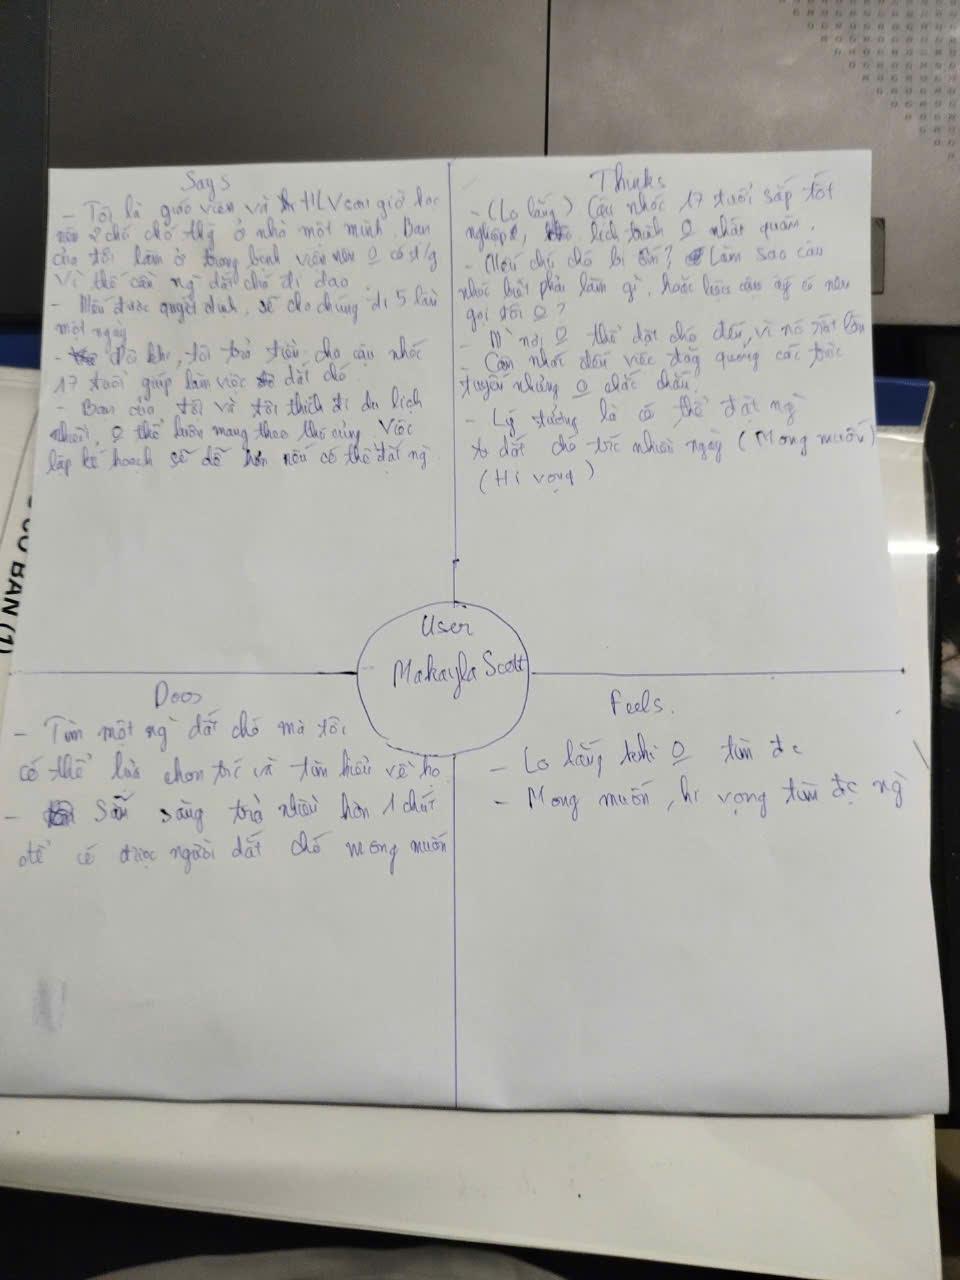 Says
- Tôi là giáo viên và HLV sau giờ học
nên 2 chú chó thg ở nhà một mình. Bạn
của tôi làm ở trong bệnh viện nên 0 có t/g
Vì thế cần ng` dắt chó đi dạo.
- Nếu được quyết định, sẽ cho chúng đi 5 lần
một ngày
- Đôi khi, tôi trả tiền cho cậu nhóc
17 tuổi giúp làm việc dắt chó
- Bạn của tôi và tôi thích đi du lịch
nhiều, 0 thể luôn mang theo thú cưng. Việc
lập kế hoạch sẽ dễ hơn nếu có thể đặt ng`
Thinks
- (Lo lắng) Cậu nhóc 17 tuổi sắp tốt
nghiệp, lịch trình 0 nhất quán.
- Nếu chú chó bị ốm? Làm sao cậu
nhóc biết phải làm gì, hoặc liệu cậu ấy có nên
gọi tôi 0?
- 0 thể dắt chó đến, vì nó rất lớn
- Cân nhắc đến việc đăg quảng cáo trực
tuyến nhưng 0 chắc chắn.
- Lý tưởng là có thể đặt ng`
dắt chó trc nhiều ngày (Mong muốn)
(Hi vọng)
User
Makayla Scott
Does
- Tìm một ng` dắt chó mà tôi
có thể lựa chọn trc và tìm hiểu về họ
- Sẵn sàng trả nhiều hơn 1 chút
để có được người dắt chó mong muốn
Feels.
- Lo lắng khi 0 tìm đc
- Mong muốn, hi vọng tìm đc ng`
CƠ BẢN (1)